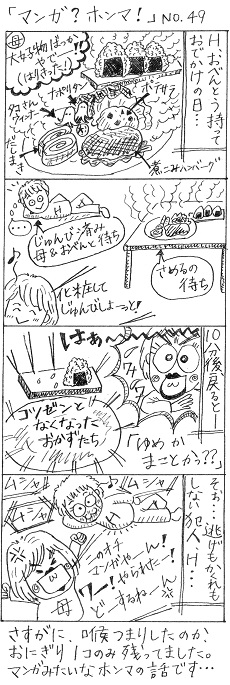 「マンガ？ホンマ！」NO.49
H、おべんとう持って
おでかけの日…
母
大好物ばっか
やで〜
(はりきった！)
ナポリタン
ポテサラ
タコさん
ウィンナー
だしまき
煮こみハンバーグ
じゅんび済み
母&おべんと待ち
さめるの
待ち
化粧して
じゅんびしよーっと！
10分後戻ると―
はぁ〜
コツゼンと
なくなった
おかずたち
「ゆめか
まことか??」
そぉ…逃げもかくれも
しない犯人H…
ムシャ
ムシャ
ムシャ
このオチ
マンガやーん！
ワー！やられたー！
どーするねーん
母
さすがに、喉つまりしたのか、
おにぎり1コのみ残ってました。
マンガみたいなホンマの話です…